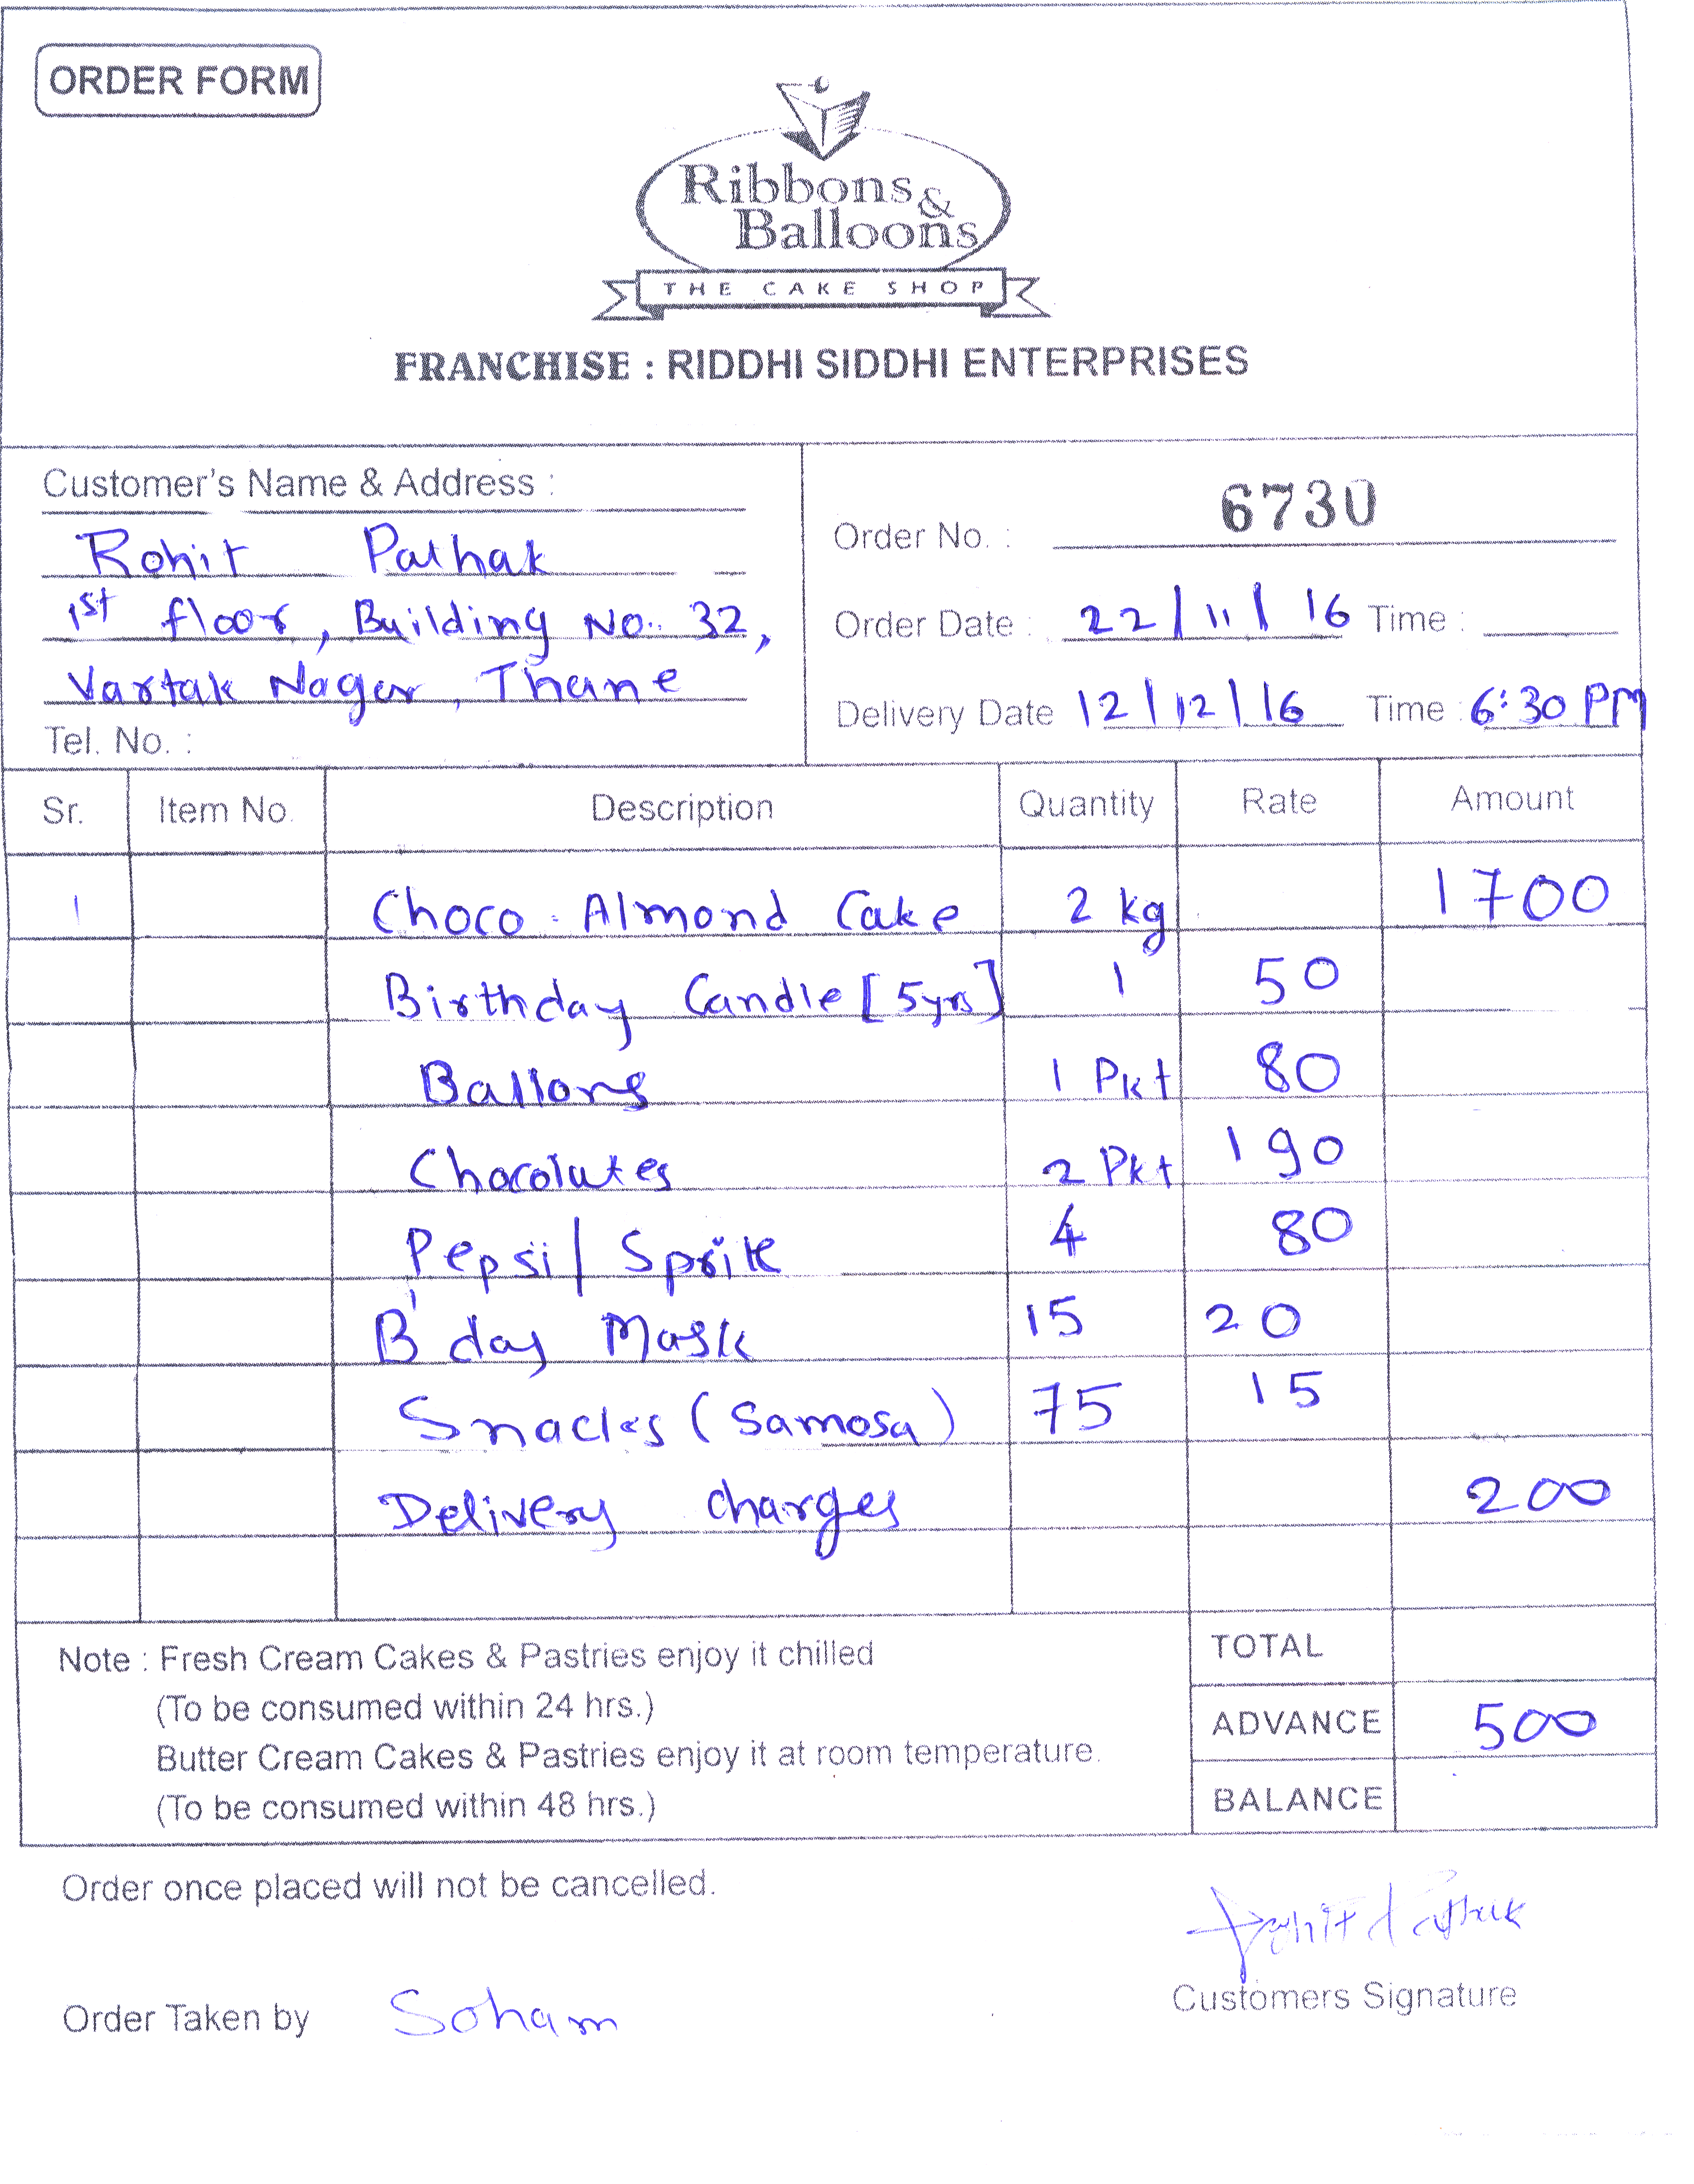 ORDER FORM
Ribbons &
Balloons
THE CAKE SHOP
FRANCHISE : RIDDHI SIDDHI ENTERPRISES
Customer's Name & Address :
Rohit Pathak
1st floor, Building No. 32,
Vartak Nagar, Thane
Tel. No. :
Order No. : 6730
Order Date : 22/11/16 Time :
Delivery Date 12/12/16 Time : 6:30 PM
Sr. Item No. Description Quantity Rate Amount
1 Choco. Almond Cake 2 kg 1700
Birthday Candle [5yrs] 1 50
Ballons 1 Pkt 80
Chocolates 2 Pkt 190
Pepsi/ Sprite 4 80
B'day Mask 15 20
Snacks (Samosa) 75 15
Delivery charges 200
Note : Fresh Cream Cakes & Pastries enjoy it chilled
(To be consumed within 24 hrs.)
Butter Cream Cakes & Pastries enjoy it at room temperature.
(To be consumed within 48 hrs.)
TOTAL
ADVANCE 500
BALANCE
Order once placed will not be cancelled.
Rohit Pathak
Customers Signature
Order Taken by Soham